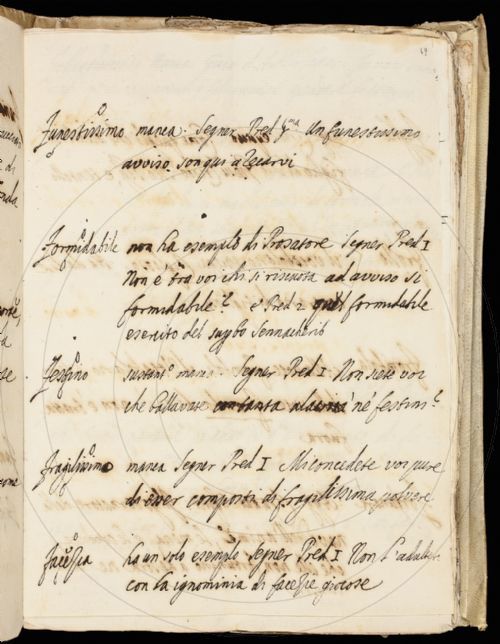 69
Funestissimo manca. Segner Pred. p.ma Un funestissimo
avviso son qui a Recarvi
Formidabile non ha esempio di Prosatore Segner Pred I
Non è tra voi chi si risenta ad avviso sì
formidabile? e Pred 2 quel formidabile
esercito del Sennacherib
Festino sustant.o manca. Segner Pred I Non siete voi
che ballavate con tanta alacrità né festini?
fragilissimo manca Segner Pred I Mi concedete voi pure
di esser composti di fragilissima polvere
facezia ha un solo esempio Segner Pred I Non
con la ignominia di facezie giocose